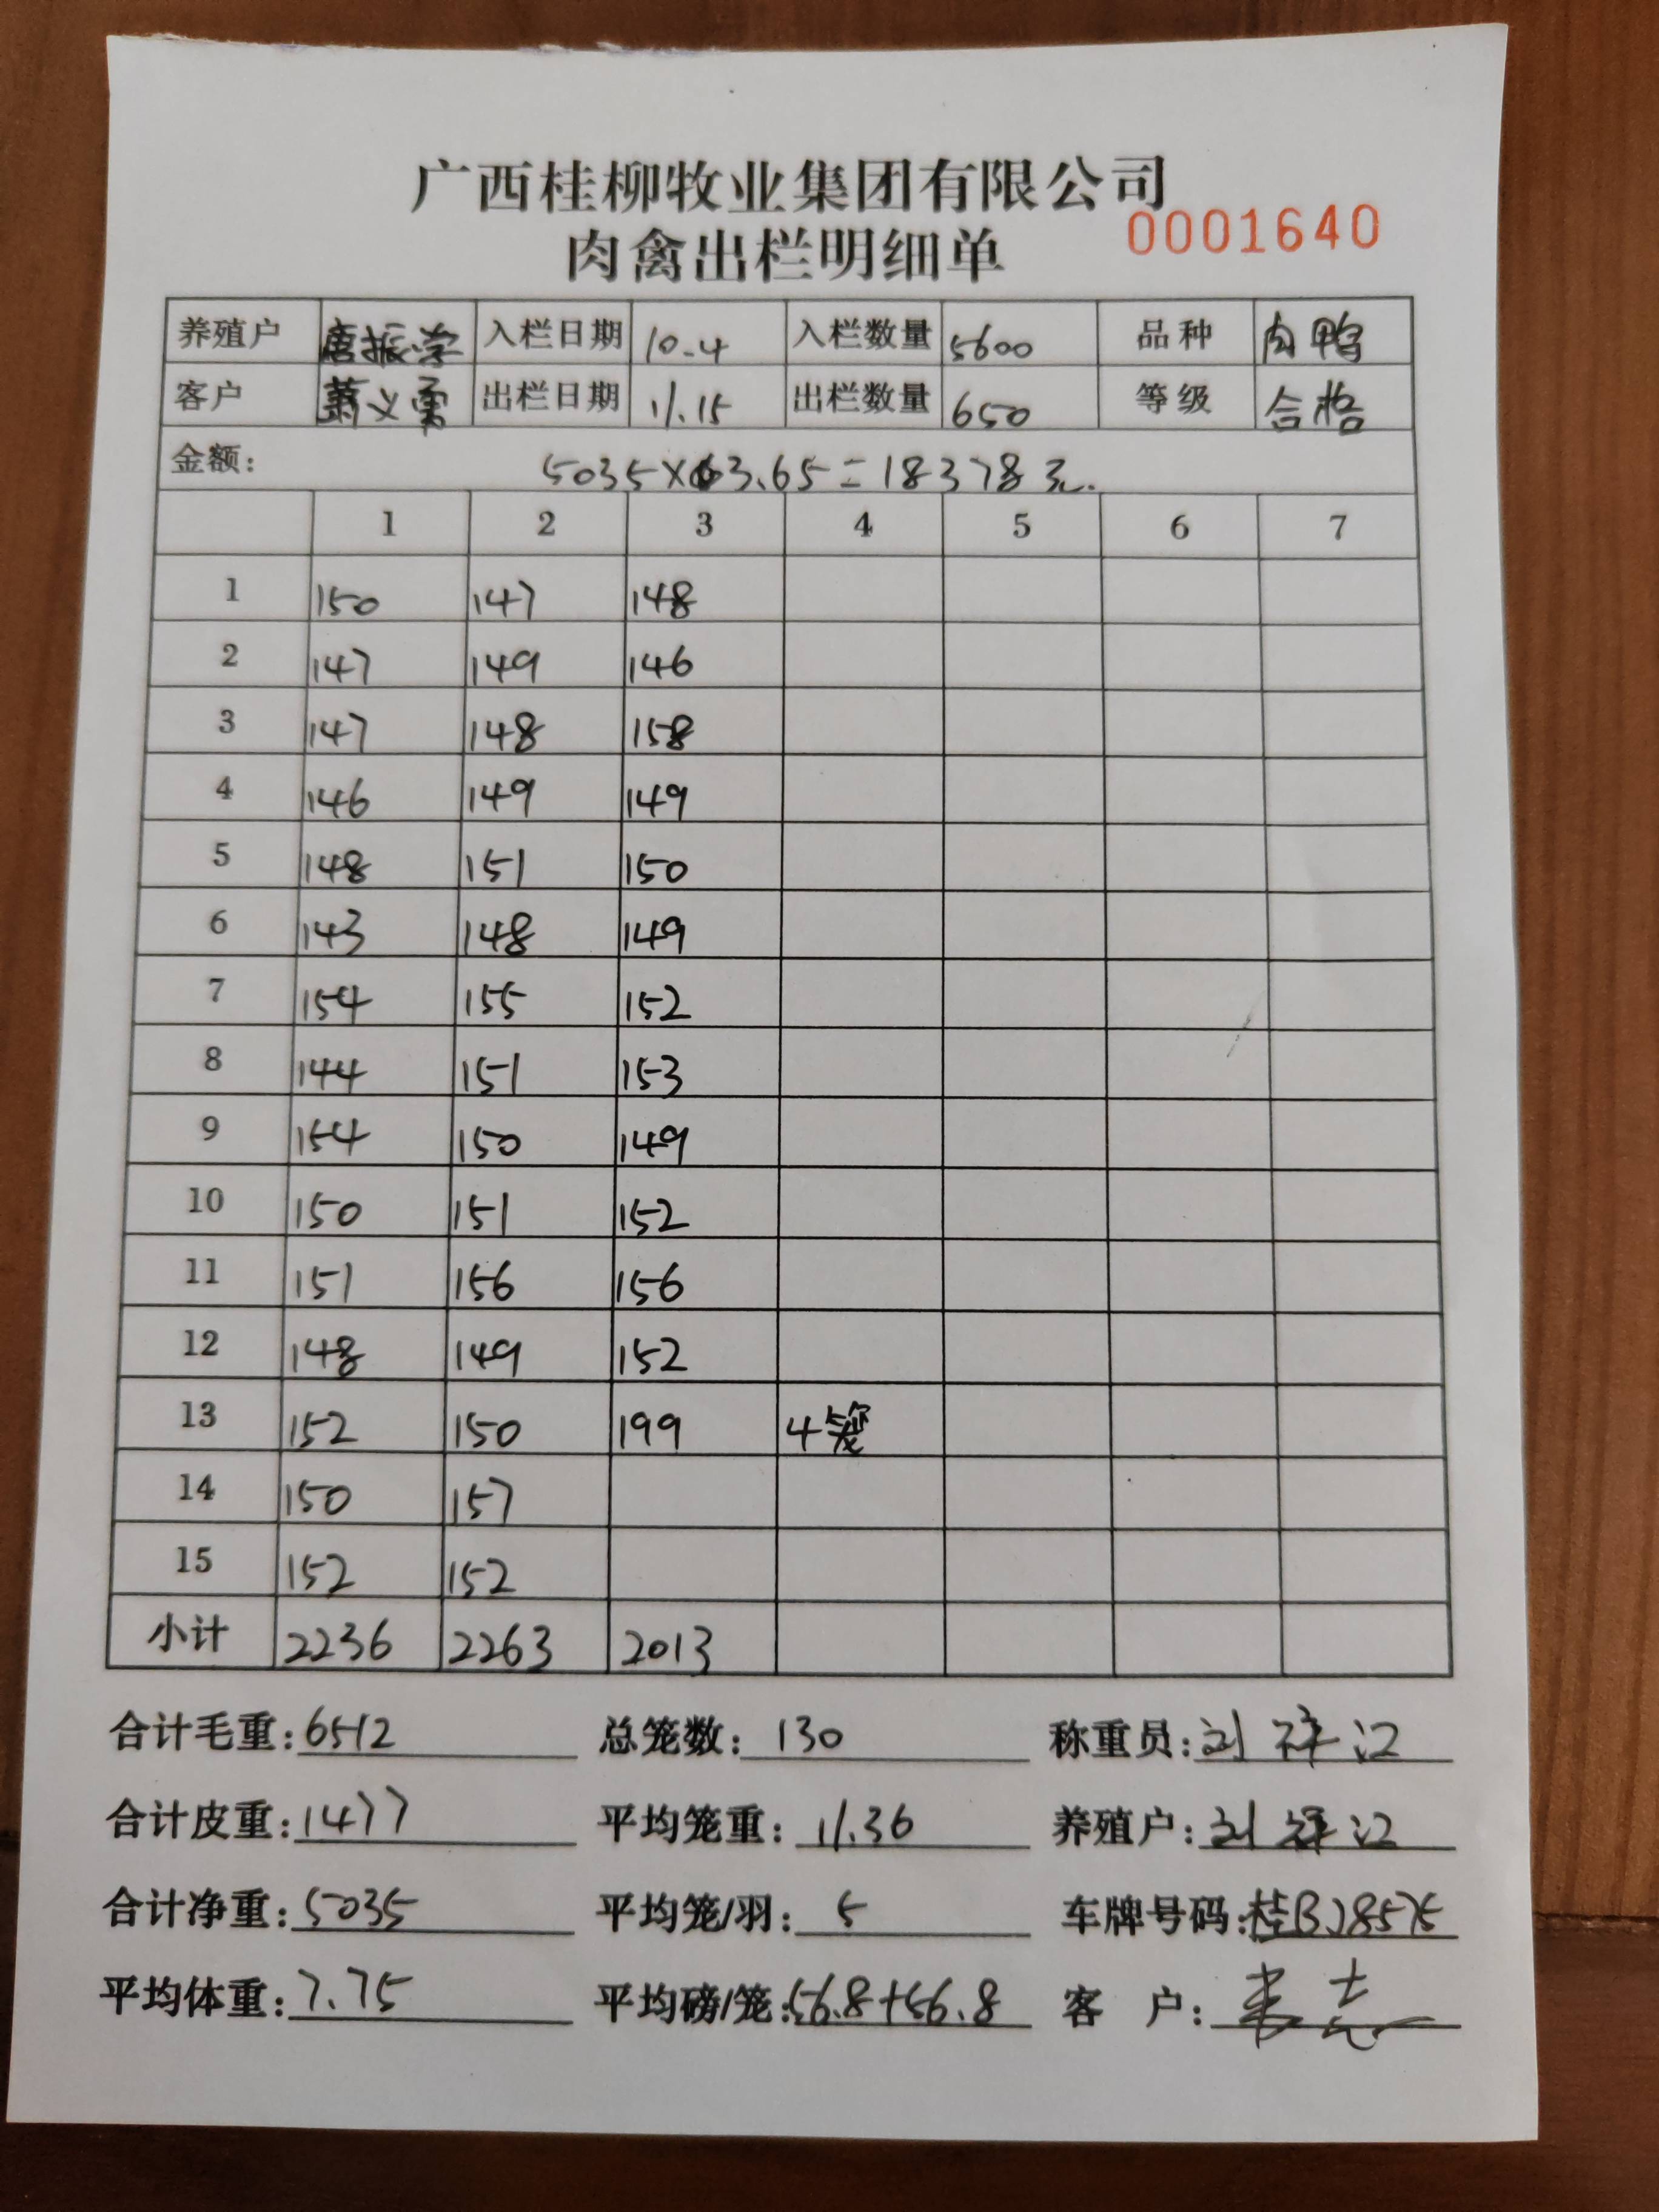 广西桂柳牧业集团有限公司
肉禽出栏明细单 0001640
养殖户 唐振学 入栏日期 10-4 入栏数量 5600 品种 肉鸭
客户 萧义勇 出栏日期 11.15 出栏数量 650 等级 合格
金额: 5035×3.65=18378元.
1 2 3 4 5 6 7
1 150 147 148
2 147 149 146
3 147 148 158
4 146 149 149
5 148 151 150
6 143 148 149
7 154 155 152
8 144 151 153
9 154 150 149
10 150 151 152
11 151 156 156
12 148 149 152
13 152 150 199 4笼
14 150 157
15 152 152
小计 2236 2263 2013
合计毛重:6512 总笼数:130 称重员:刘祥江
合计皮重:1477 平均笼重:11.36 养殖户:刘祥江
合计净重:5035 平均笼/羽:5 车牌号码:桂BJ8575
平均体重:7.75 平均磅/笼:56.8+56.8 客 户: